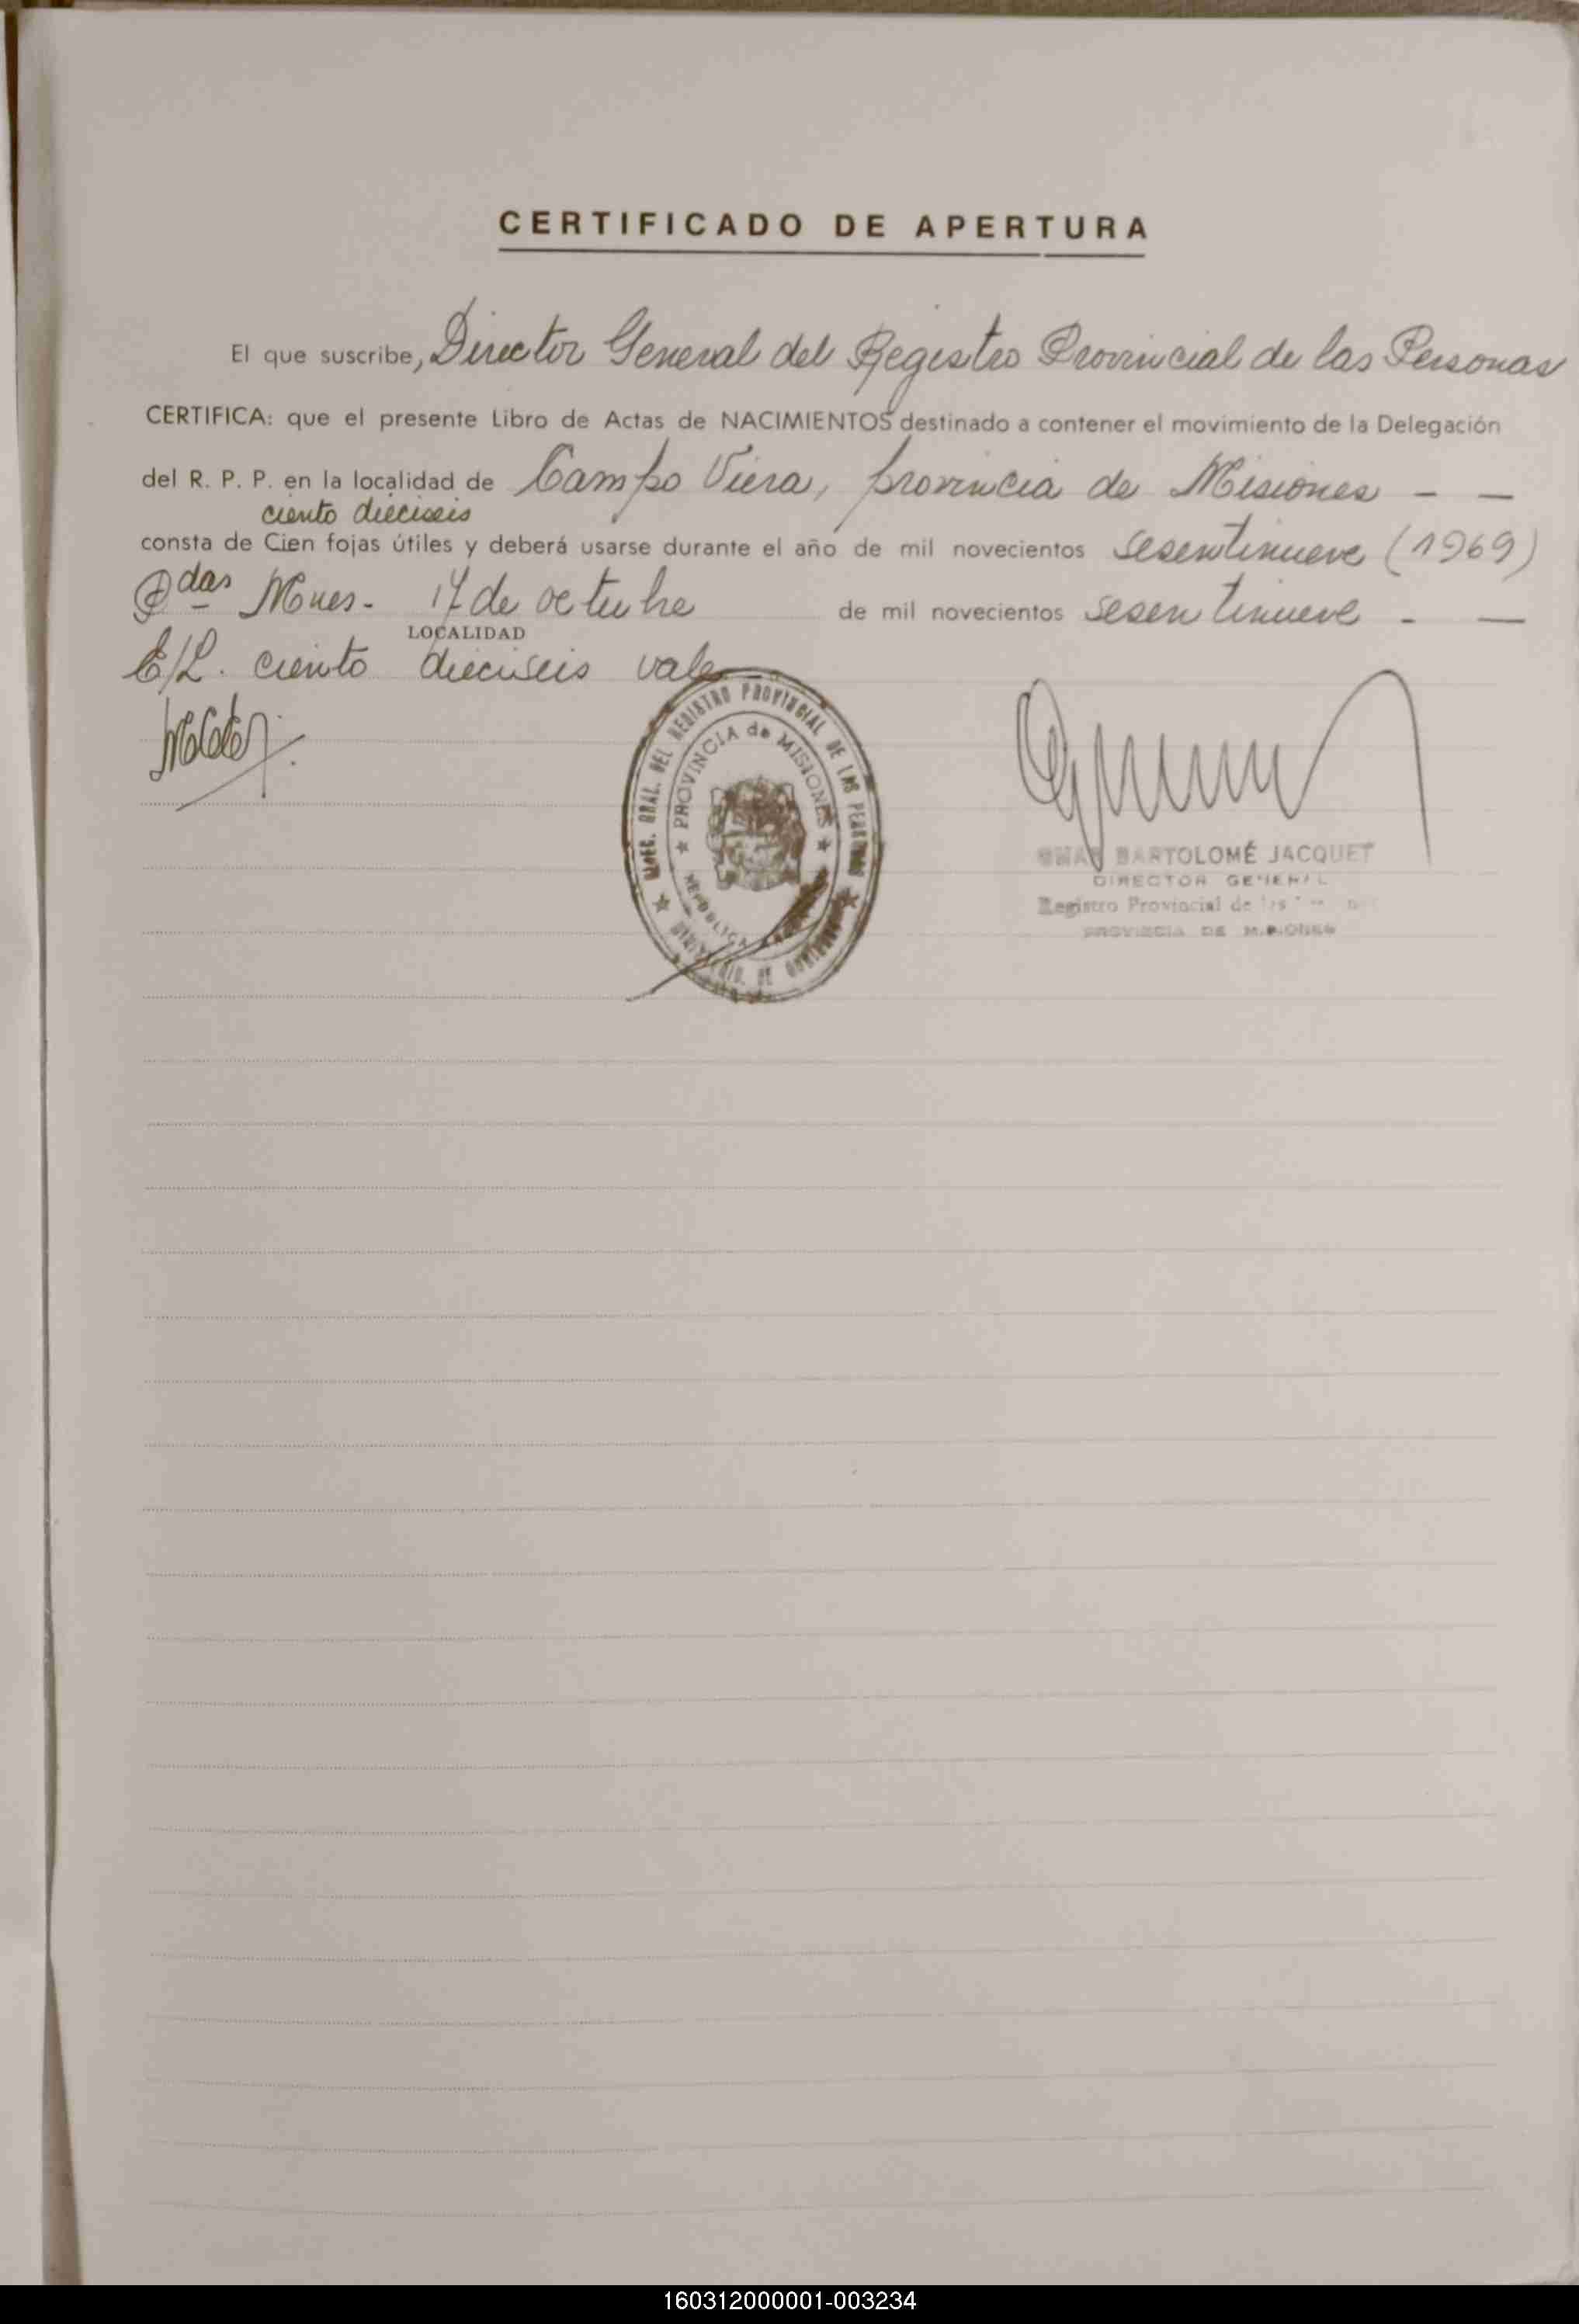 CERTIFICADO DE APERTURA
El que suscribe, Director General del Registro Provincial de las Personas
CERTIFICA: que el presente Libro de Actas de NACIMIENTOS destinado a contener el movimiento de la Delegación
del R. P. P. en la localidad de Campo Viera, provincia de Misiones - -
ciento dieciseis
consta de Cien fojas útiles y deberá usarse durante el año de mil novecientos sesentinueve (1969)
Pdas Mnes. 17 de octubre de mil novecientos sesentinueve - -
LOCALIDAD
E/L. ciento dieciseis vale
GRAL. DEL REGISTRO PROVINCIAL DE LAS PERSONAS
PROVINCIA de MISIONES
REPUBLICA
BARTOLOMÉ JACQUET
DIRECTOR GENERAL
Registro Provincial de las
PROVINCIA DE MISIONES
160312000001-003234